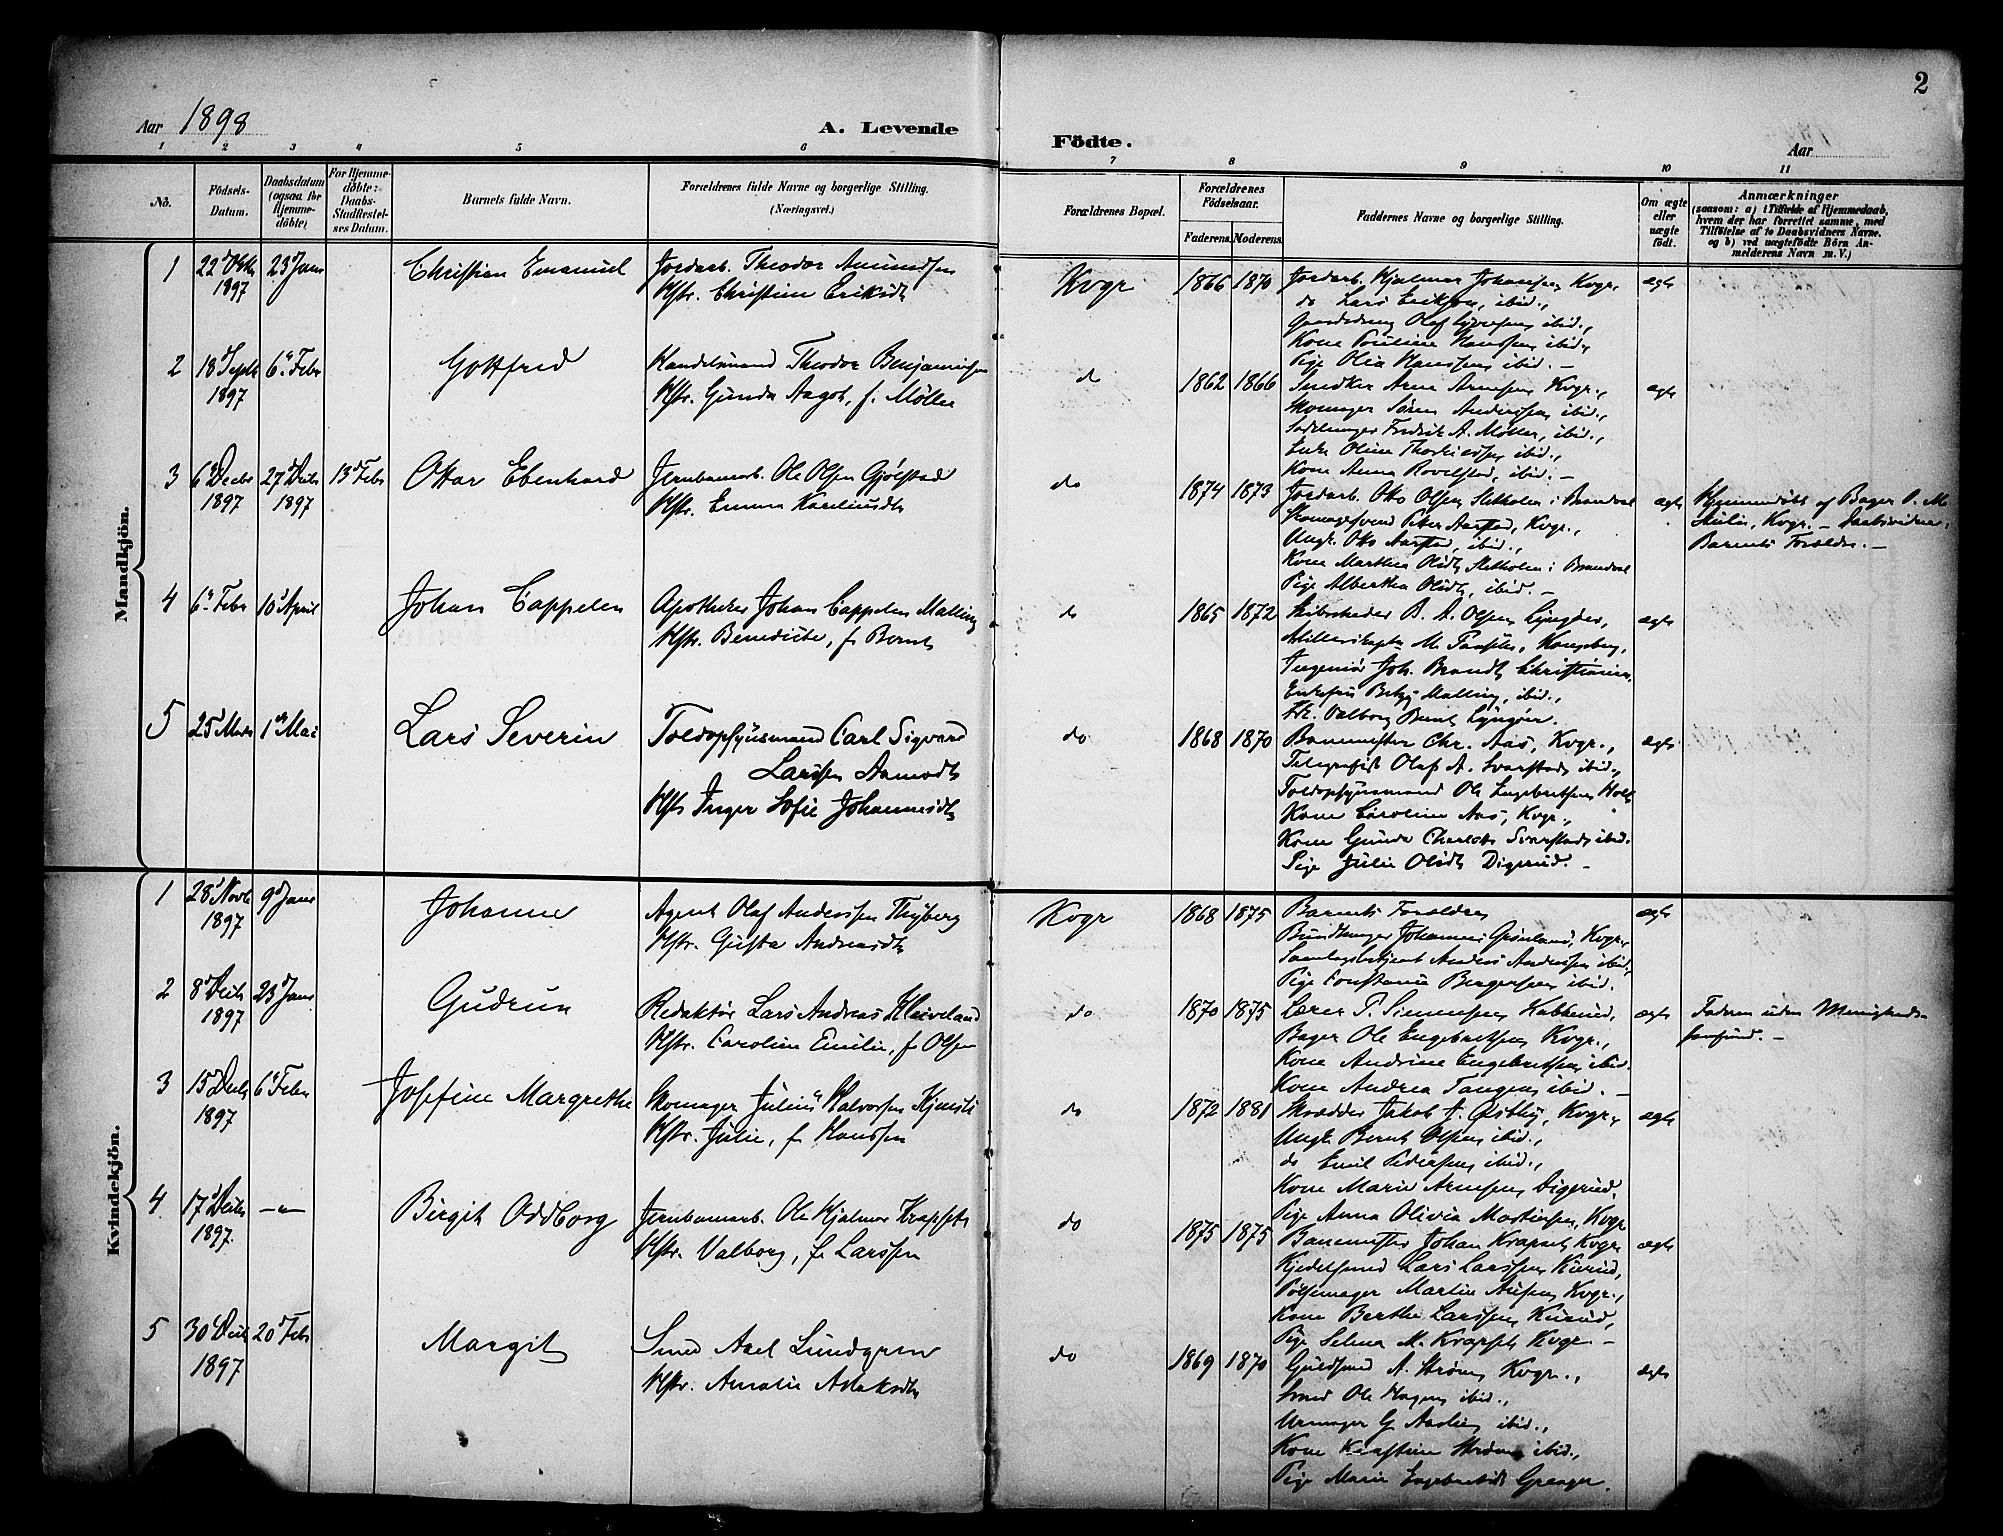 2
Aar 1898
A. Levende
Födte.
Aar
1 2 3 4 5 6 7 8 9 10 11
No.
Födsels-
Datum.
Daabsdatum
(ogsaa for
Hjemme-
døbte)
For Hjemme-
døbte:
Daabs-
Stadfæstel-
ses Datum.
Barnets fulde Navn.
Forældrenes fulde Navne og borgerlige Stilling.
(Næringsvei.)
Forældrenes Bopæl.
Forældrenes
Födselsaar.
Faderens.
Moderens.
Faddernes Navne og borgerlige Stilling.
Om ægte
eller
uægte
födt.
Anmærkninger
(saasom: a) i Tilfælde af Hjemmedaab,
hvem der har forrettet samme, med
Tilföielse af to Daabsvidners Navne,
og b) ved uægtefödte Börn An-
melderens Navn m. V.)
Mandkjön.
1
1897
23 Jan
Christian Emanuel
Jordarb. Theodor Amundsen
Hstr. Christine Eriksdt
Kvgr
1866 1870
Jordarb. Hjalmar Johansen, Kvgr.,
do Lars Eriksen, ibid.,
Olaf ibid.,
Kone Pauline Hanssen ibid.,
Pige Olia Hanssen ibid. –
ægte
2
18 Septb
1897
6 Febr
Gottfred
Handelsmand Theodor Benjaminsen
Hstr. Gunda Aagot, f. Möller
do
1862 1866
Snedker Arne Arnesen, Kvgr.,
Skomager Sören Anderssen, ibid.,
Sadelmager Fredrik A. Möller, ibid.,
Enke Oline ibid.,
Kone Anna ibid. –
ægte
3
6 Decbr
1897
27 Decbr
1897
13 Febr
Ottar Ebenhard
Jernbanearb. Ole Olsen Gjølstad
Hstr. Emma
do
1874 1873
Jordarb. Otto Olsen, i Brandval
Skomagersvend Peter Aarstad, Kvgr.,
Ungk. Otto Aarstad, ibid.,
Kone Marthea Olsdt, i Brandval
Pige Albertha Olsdt, ibid. –
ægte
Hjemmedöbt af Bager O. M.
Kvgr. – Daabsvidner:
Barnets Forældre. –
4
6 Febr
10 April
Johan Cappelen
Apotheker Johan Cappelen Malling
Hstr. Benedicte, f. Bernt
do
1865 1872
Skibsrheder B. A. Olsen, Lyngör,
M. Kongsberg,
Ingeniör Joh. Brandt, Christiania,
Betzy Malling, ibid.,
Frk. Valborg Bernt, Lyngör.
ægte
5
25 Marts
1 Mai
Lars Severin
Toldopsynsmand Carl Sigvard
Larssen Aamodt
Hstr Inger Sofie Johannesdt
do
1868 1870
Banemester Chr. Aas, Kvgr.,
Telegrafist Olaf A. Svarstad, ibid.,
Toldopsynsmand Ole Engebretsen, Holt
Kone Caroline Aas, Kvgr.,
Kone Gunda Charlotte Svarstad, ibid.
Pige Julie Olsdt, Digerud. –
ægte
Kvindekjön.
1
28 Novb
1897
9 Jan
Johanne
Agent Olaf Anderssen Thyberg
Hstr. Gusta Andreasdt
Kvgr
1868 1875
Barnets Forældre
Bundtmager Johannes Grönland, Kvgr.,
Samlagsbetjent Anders Anderssen ibid.,
Pige Constance Bergersen, ibid.
ægte
2
8 Decbr
1897
23 Jan
Gudrun
Redaktör Lars Andreas Kleiveland
Hstr. Caroline Emilie, f. Olsen
do
1870 1875
Lærer P. Simensen,
Bager Ole Engebretsen, Kvgr.,
Kone Andrine Engebretsen, ibid.
Kone Andrea Tangen, ibid. –
ægte
Faderen uden Menigheds-
samfund. –
3
15 Decbr
1897
6 Febr
Josefine Margrethe
Skomager Julius Halvorsen
Hstr. Julie, f. Hanssen
do
1872 1881
Skrædder Jakob A. Østby, Kvgr.,
Ungk. Bernt Olsen, ibid.,
do Emil Pedersen, ibid.,
Kone Marie Arnesen, Digerud,
Pige Anna Olivia Mortinsen, Kvgr
ægte
4
17 Decbr
1897.
–„–
Birgit Oddborg
Jernbanearb. Ole Hjalmar Krapset
Hstr. Valborg, f. Larssen
do
1875 1875
Banemester Johan Krapset, Kvgr.
Kjedelsmed Lars Larssen, Kurud,
Pölsemager Martin Kvgr.,
Kone Berthe Larssen, Kurud,
Pige Selma M. Krapset, Kvgr. –
ægte
5
30 Decbr
1897
20 Febr
Margit
Smed Axel Lundgren
Hstr. Amalie Aslaksdt
do
1869 1870
Guldsmed A. Ström, Kvgr.,
Smed Ole Hagen, ibid.,
Urmager G. ibid.,
Kone Ström, ibid.,
Pige Marie Engebretsdt
ægte